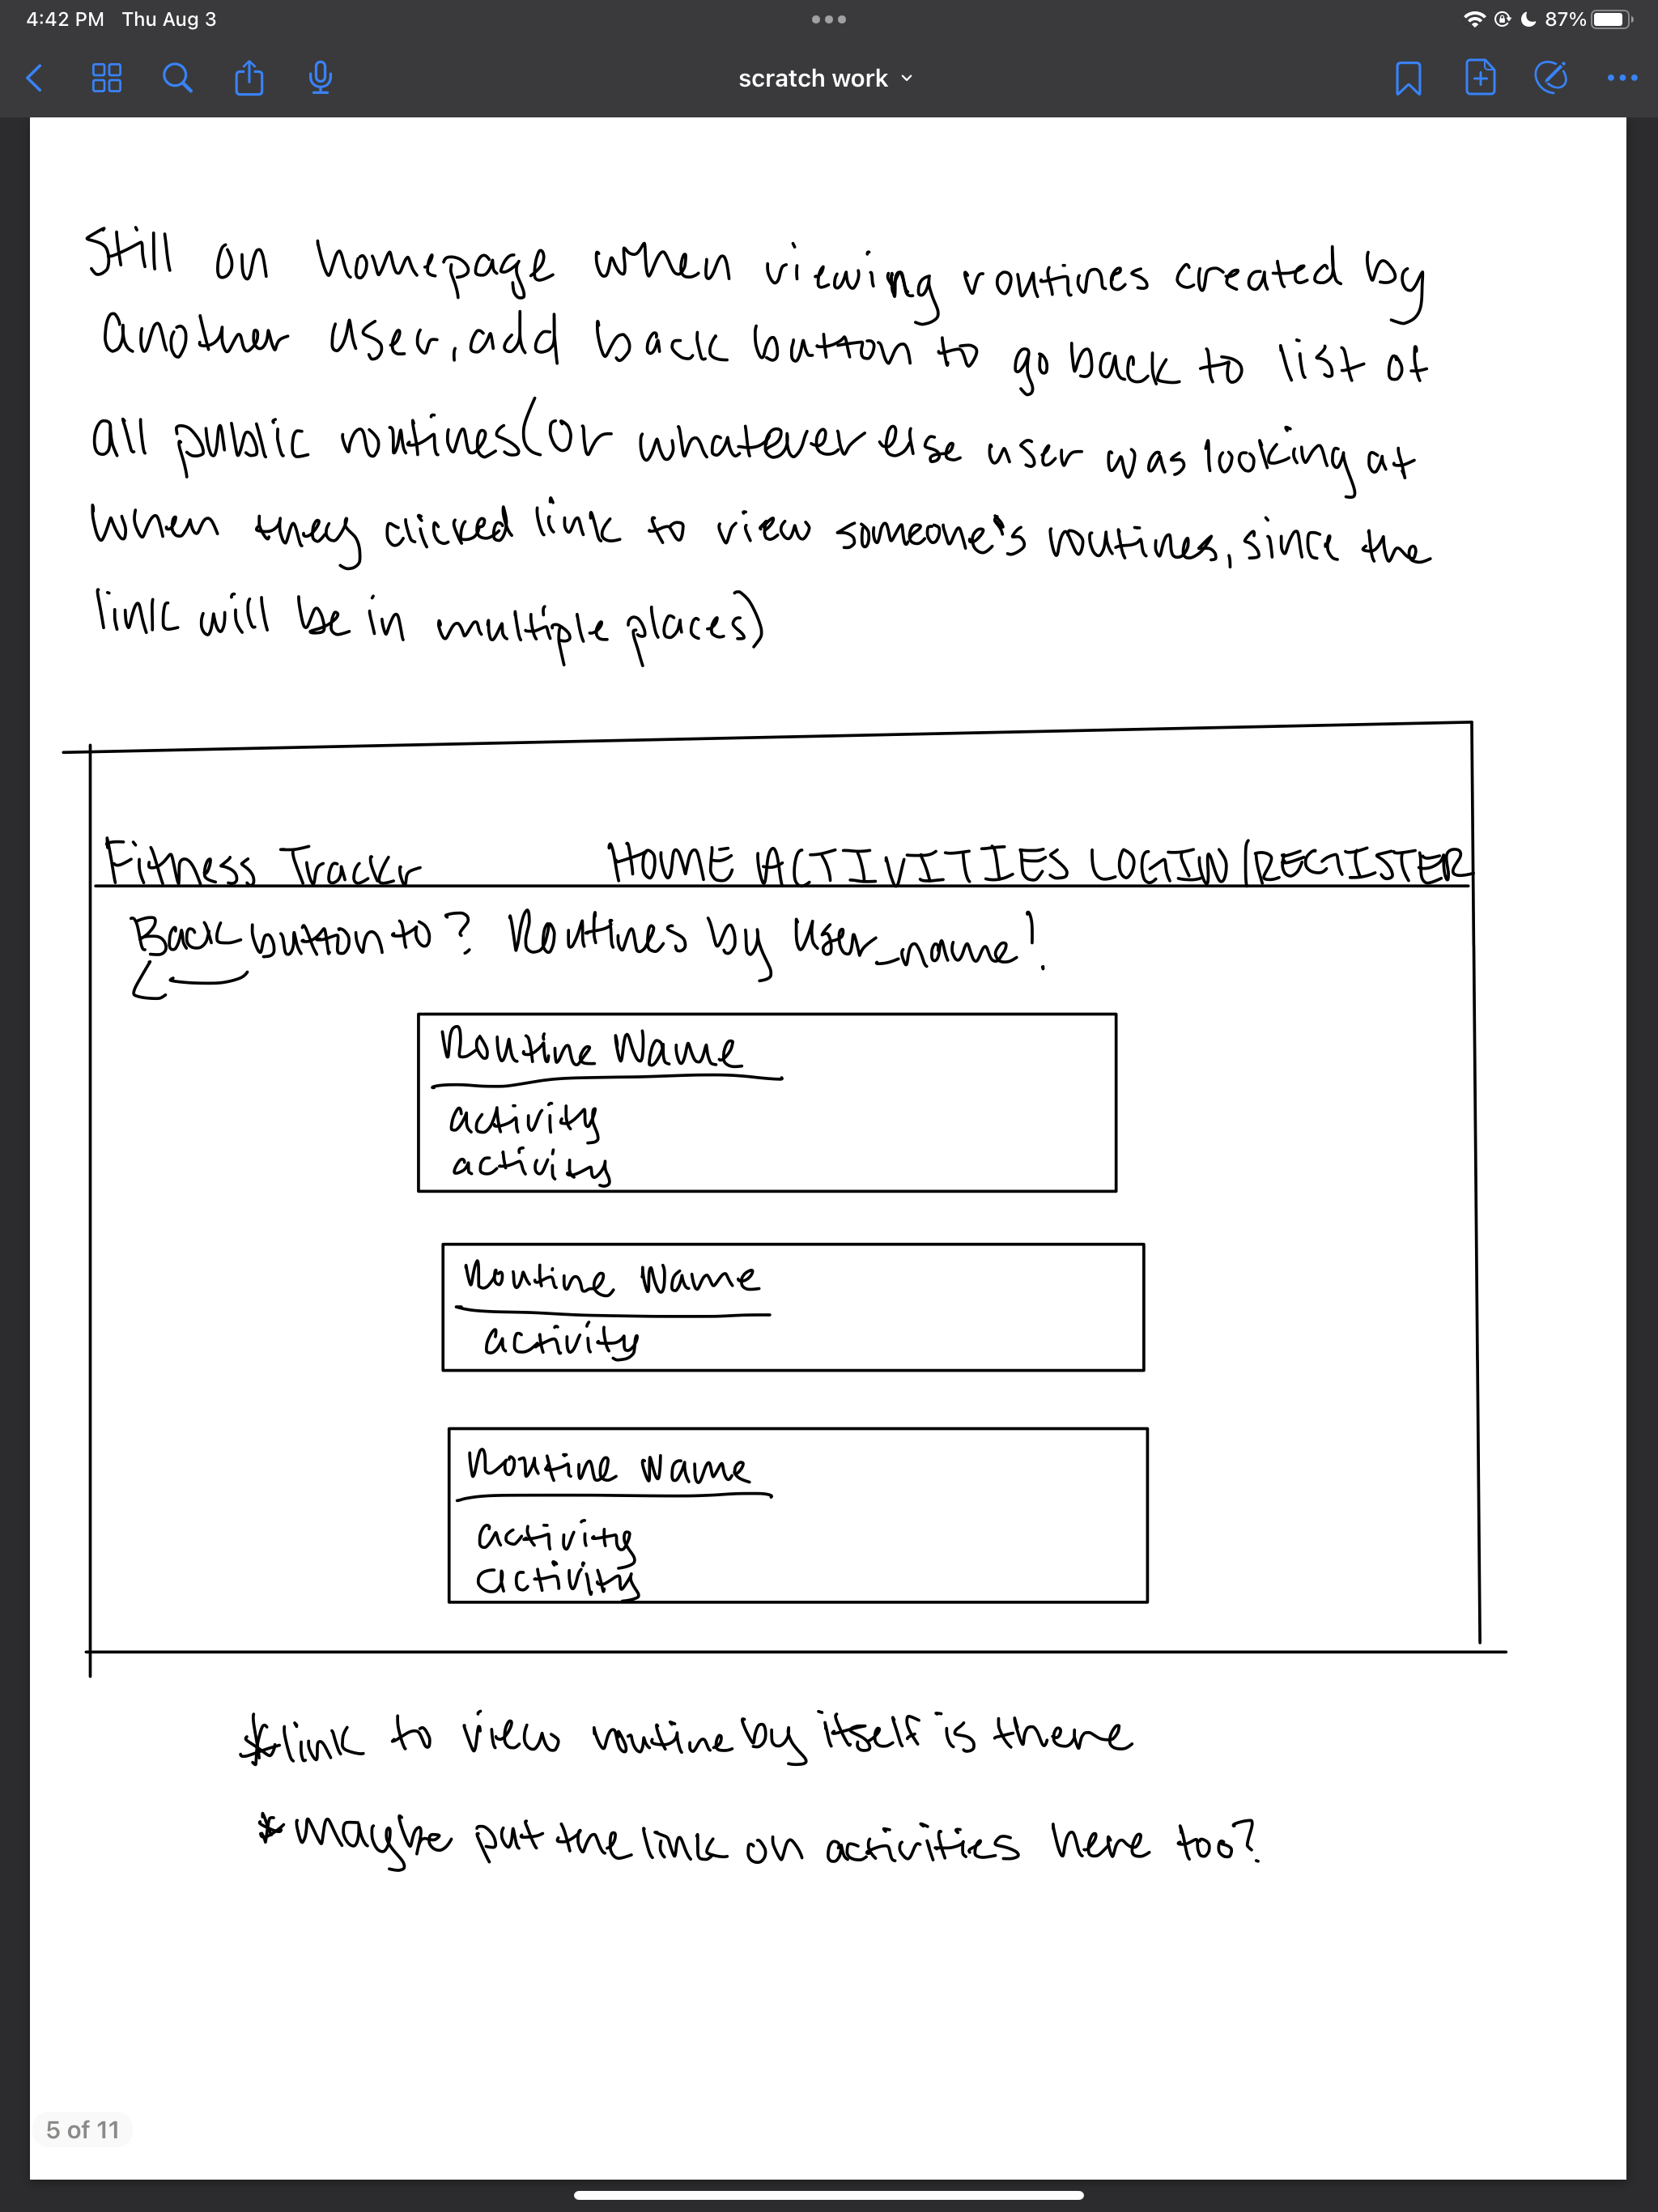 4:42 PM Thu Aug 3
87%
scratch work
Still on homepage when viewing routines created by
another user, add back button to go back to list of
all public routines (or whatever else user was looking at
when they clicked link to view someone's routines, since the
link will be in multiple places)
Fitness Trackr HOME ACTIVITIES LOGIN/REGISTER
Back button to? Routines by user_name!
Routine Name
activity
activity
Routine Name
activity
Routine Name
activity
activity
*link to view routine by itself is there
*maybe put the link on activities here too?
5 of 11